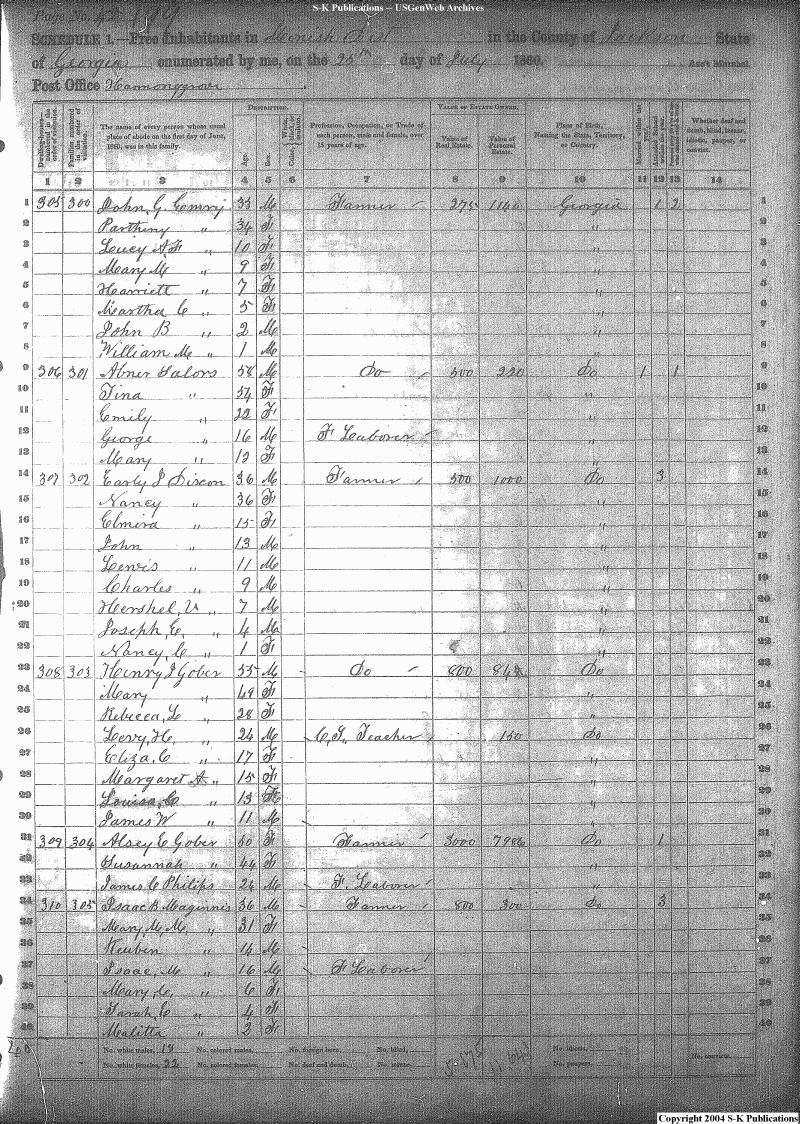 S-K Publications -- USGenWeb Archives
Page No. 42 199
SCHEDULE 1.—Free Inhabitants in Minish Dist in the County of Jackson State
of Georgia enumerated by me, on the 25th day of July 1860. Ass't Marshal.
Post Office Harmonygrove
Dwelling-houses—numbered in the order of visitation.
Families numbered in the order of visitation.
The name of every person whose usual place of abode on the first day of June, 1860, was in this family.
DESCRIPTION.
Age.
Sex.
Color, White, black, or mulatto.
Profession, Occupation, or Trade of each person, male and female, over 15 years of age.
VALUE OF ESTATE OWNED.
Value of Real Estate.
Value of Personal Estate.
Place of Birth, Naming the State, Territory, or Country.
Married within the year.
Attended School within the year.
Whether deaf and dumb, blind, insane, idiotic, pauper, or convict.
1 2 3 4 5 6 7 8 9 10 11 12 13 14
1 305 300 John G Emmry 33 M Farmer 275 1140 Georgia 1 2 1
2 Partheny " 34 F " 2
3 Lucy A F " 10 F " 3
4 Mary M " 9 F " 4
5 Harriett " 7 F " 5
6 Martha C " 5 F " 6
7 John B " 2 M " 7
8 William M " 1 M " 8
9 306 301 Abner Sailors 58 M Do 500 220 Do 1 1 9
10 Tina " 54 F " 10
11 Emily " 22 F " 11
12 George " 16 M F Laborer " 12
13 Mary " 12 F " 13
14 307 302 Early J Dixon 36 M Farmer 500 1000 Do 3 14
15 Nancy " 36 F " 15
16 Elmira " 15 F " 16
17 John " 13 M " 17
18 Lewis " 11 M " 18
19 Charles " 9 M " 19
20 Hershel, V " 7 M " 20
21 Joseph, E, " 4 M " 21
22 Nancy, C " 1 F " 22
23 308 303 Henry J Gober 55 M Do 800 848 Do 23
24 Mary " 48 F " 24
25 Rebecca, L " 28 F " 25
26 Levy, H, " 24 M C, S, Teacher 150 Do 26
27 Eliza, C " 17 F " 27
28 Margaret A " 15 F " 28
29 Louisa, C " 13 F " 29
30 James W " 11 M " 30
31 309 304 Alsey E Gober 50 F Farmer 3000 7986 Do 1 31
32 Susannah " 44 F " 32
33 James C Philips 24 M F. Laborer " 33
34 310 305 Isaac B Maginnis 36 M Farmer 800 300 Do 3 34
35 Mary, M M, " 31 F " 35
36 Reuben " 14 M " 36
37 Isaac, M " 16 M F Laborer " 37
38 Mary, C, " 6 F " 38
39 Sarah, C " 4 F " 39
40 Malitta " 2 F " 40
No. white males, 18 No. colored males, No. foreign born, No. blind, No. idiotic,
No. white females, 22 No. colored females, No. deaf and dumb, No. insane, No. paupers, No. convicts,
Copyright 2004 S-K Publications